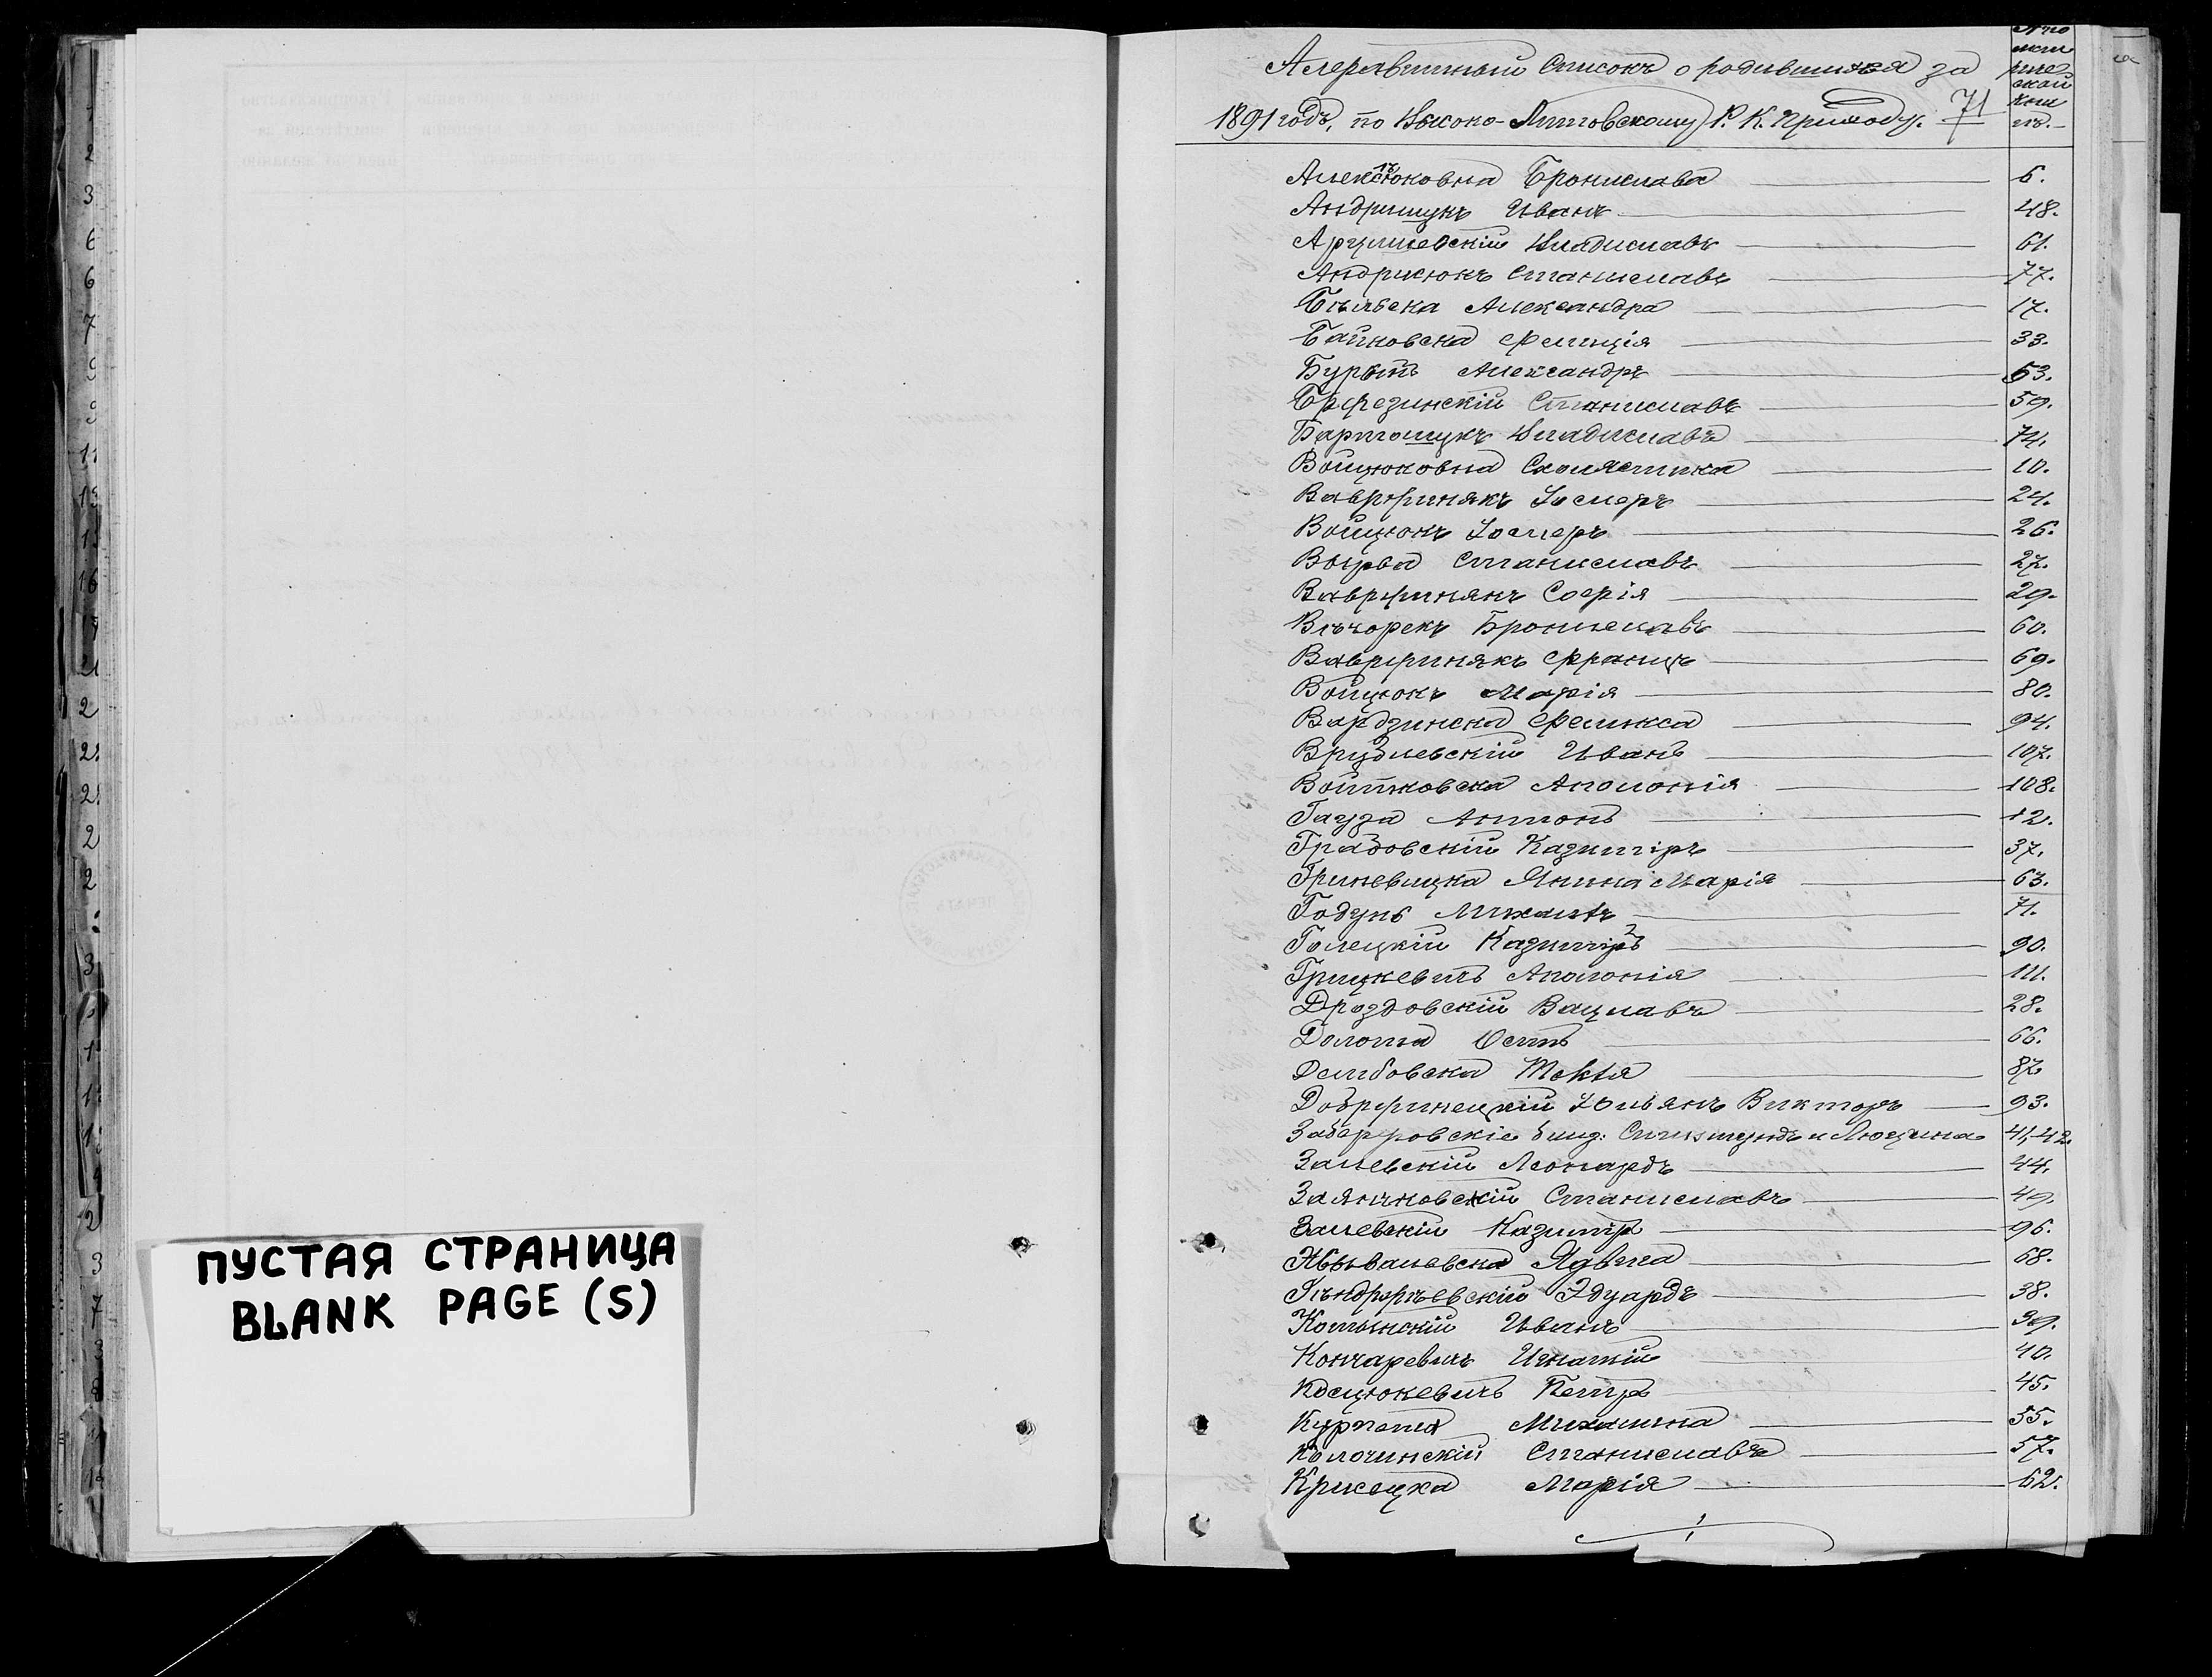 ПУСТАЯ СТРАНИЦА
BLANK PAGE (S)
Алфавитный Списокъ о родившихся за
1891 годъ, по Высоко-Литовскому Р. К. Приходу. 71
№ по
метри
ческой
кни
гѣ.
Алексюковна Бронислава 6.
Андрищукъ Иванъ 48.
Арцишевскій Владиславъ 61.
Андрисюкъ Станиславъ 77.
Бѣльска Александра 17.
Байковска Фелиція 33.
Александръ 53.
Березинскій Станиславъ 59.
Бартощукъ Владиславъ 74.
Войцюковна Схоластика 10.
Вавриинякъ Іосифъ 24.
Войцюкъ Іосифъ 26.
Вырва Станиславъ 27.
Софія 29.
Вѣчорекъ Брониславъ 60.
Францъ 69.
Войцюкъ Марія 80.
Вардзинска Феликса 94.
Врублевскій Иванъ 107.
Войтковска Аполонія 108.
Гауза Антонъ 12.
Градовскій Казиміръ 37.
Гриневицка Янина Марія 63.
Годунъ Михаилъ 71.
Голецкій Казиміръ 2 90.
Грицкевичъ Аполонія 111.
Дроздовскій Вацлавъ 28.
Долота Осипъ 66.
Дембовска Текля 87.
Юльянъ Викторъ 93.
близ: Сигизмундъ и Люцина 41,42.
Залевскій Леонардъ 44.
Заянчковскій Станиславъ 49.
Залевскій Казиміръ 96.
Ядвига 68.
Эдуардъ 38.
Котынскій Иванъ 39.
Кончаревичъ Игнатій 40.
Косцюкевичъ Петръ 45.
Михалина 55.
Колочинскій Станиславъ 57.
Крисецка Марія 62.